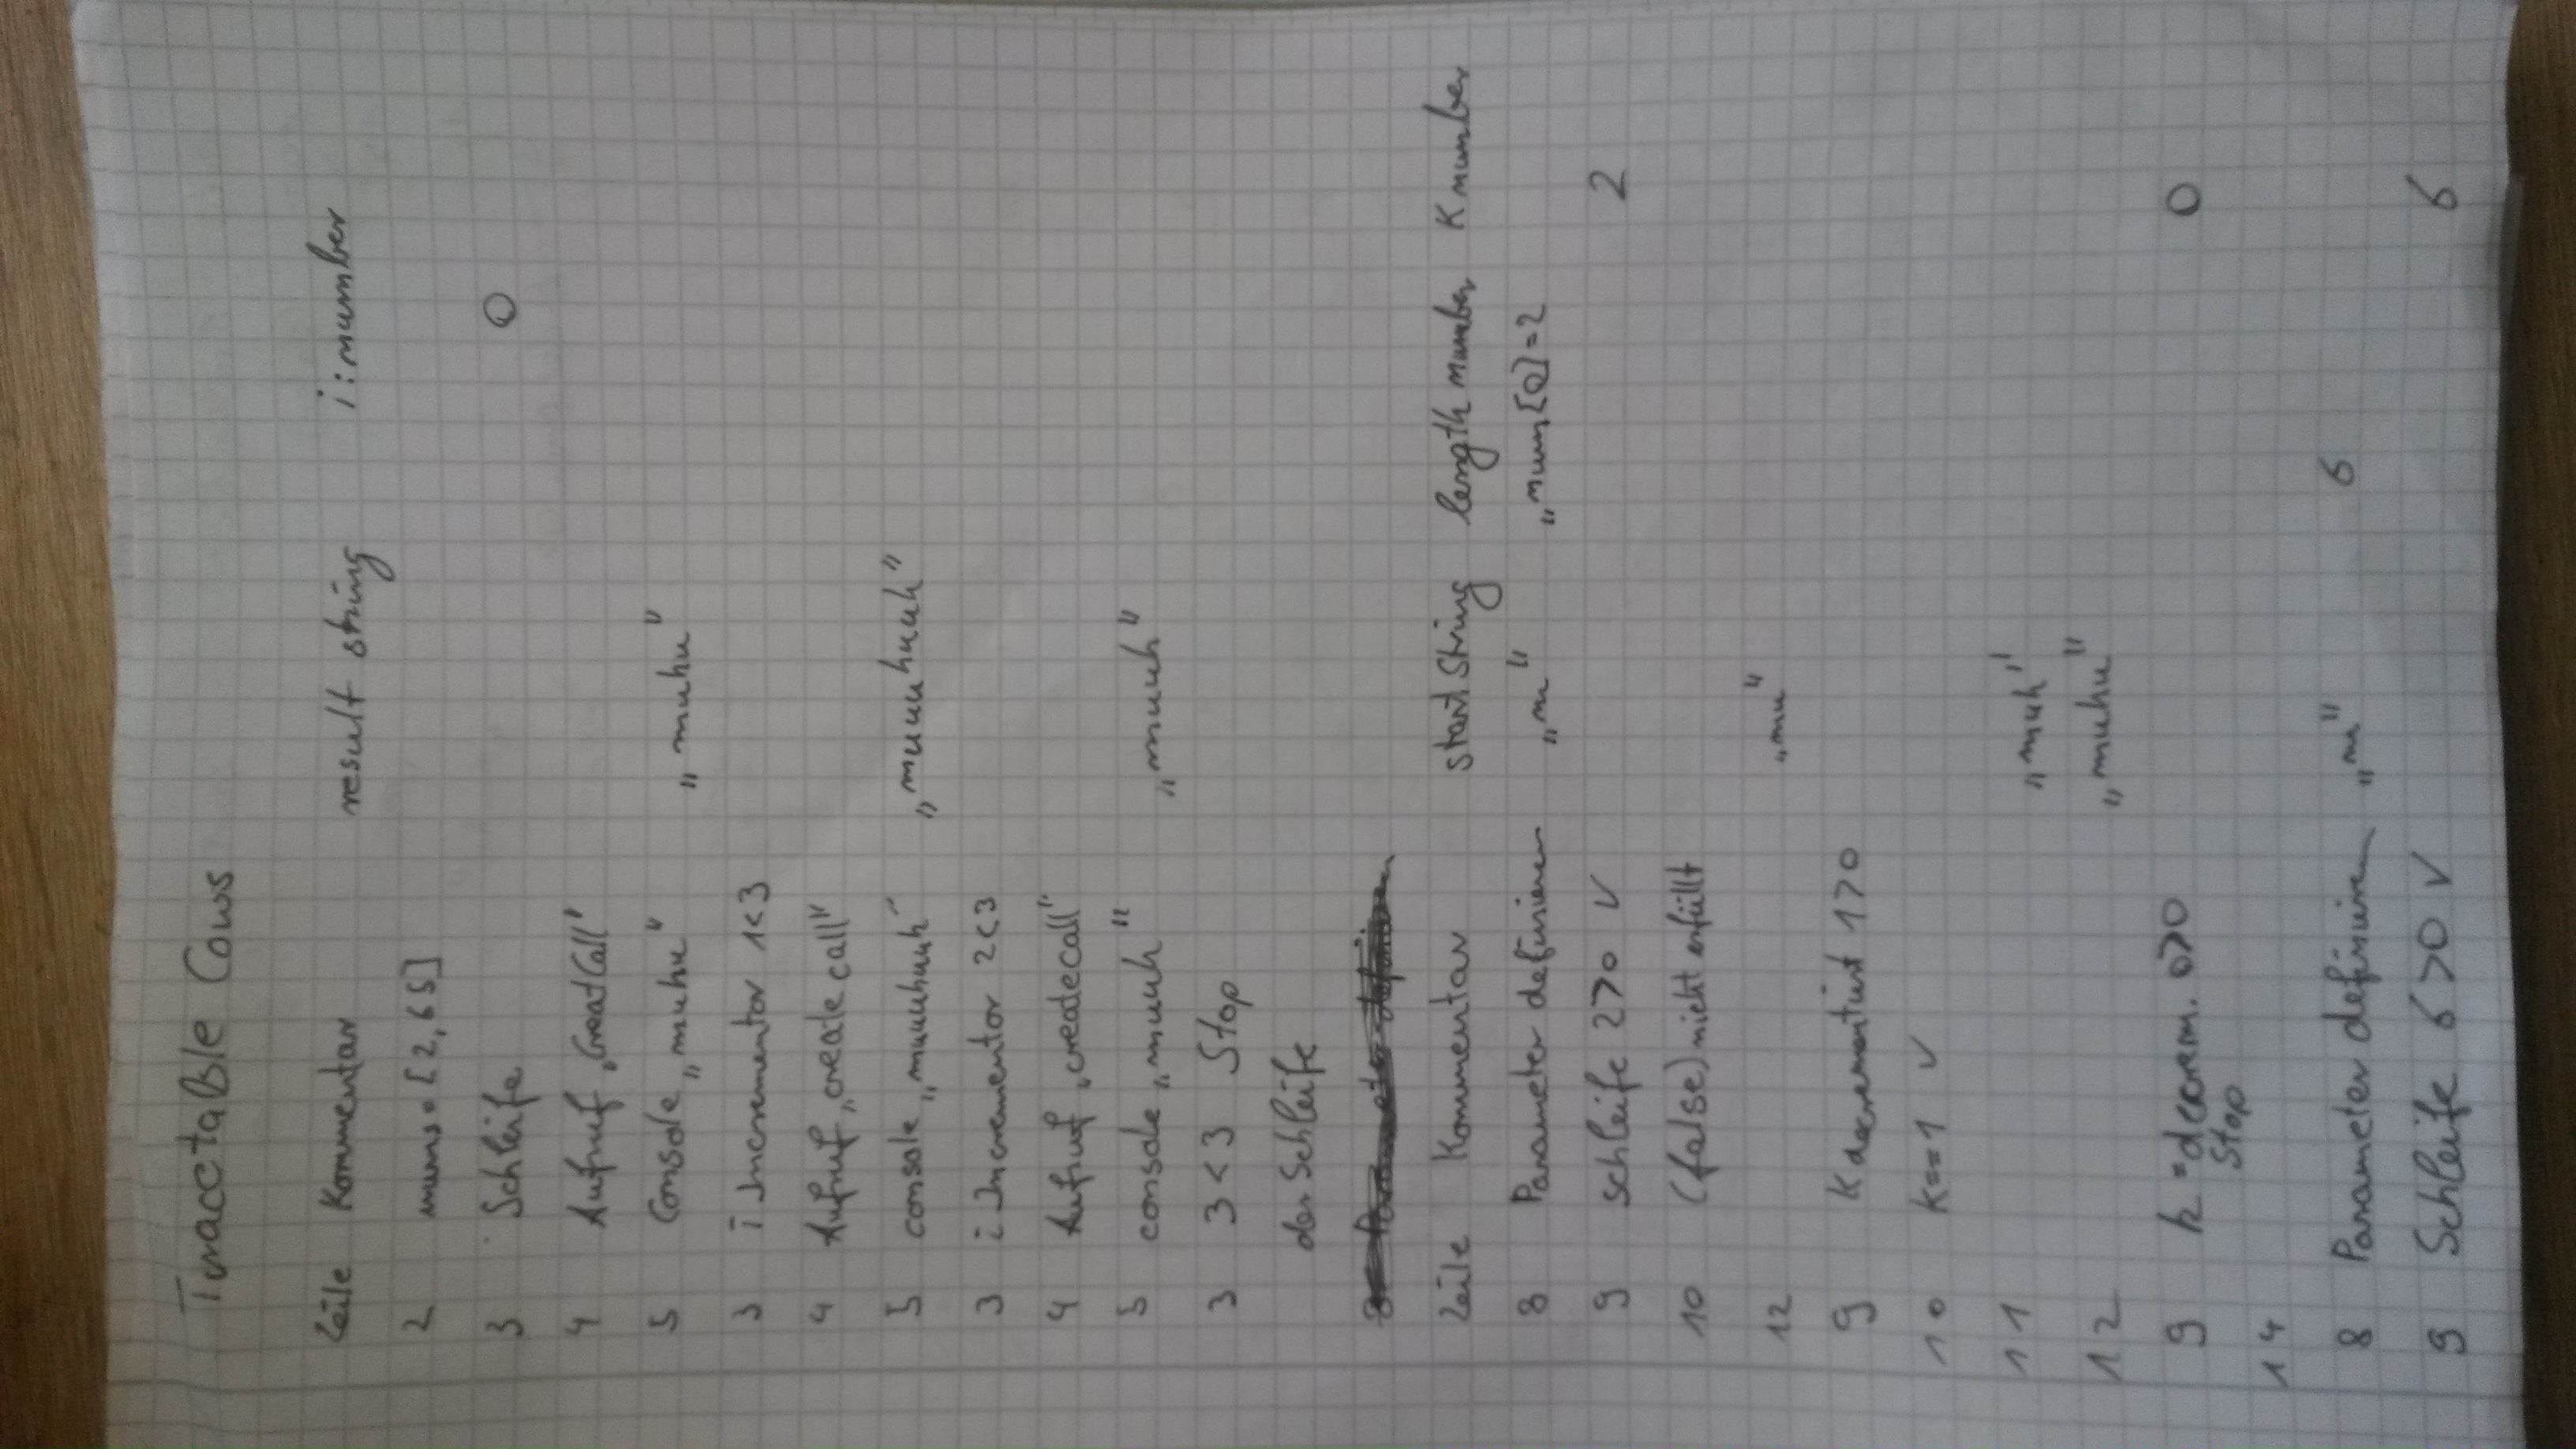 Tracetable Cows
Zeile Kommentar result string i:number
2 nums = [2, 6 5]
3 Schleife 0
4 Aufruf „CreatCall"
5 Console „muhu" „muhu"
3 i Incrementor 1<3
4 Aufruf „create call"
5 console „muuuhuuh" „muuuhuuh"
3 i Incrementor 2<3
4 Aufruf „createcall"
5 console „muuh" „muuh"
3 3<3 Stop
der Schleife
Zeile Kommentar start String length number K number
8 Parameter definieren „m" „num[0]=2
9 schleife 2>0 ✓ 2
10 (false) nicht erfüllt
12 „mu"
9 K decrementiert 1>0
10 k==1 ✓
11 „muh"
12 „muhu"
9 k = decrem. 0>0 0
Stop
14
8 Parameter definieren „m" 6
9 Schleife 6>0 ✓ 6